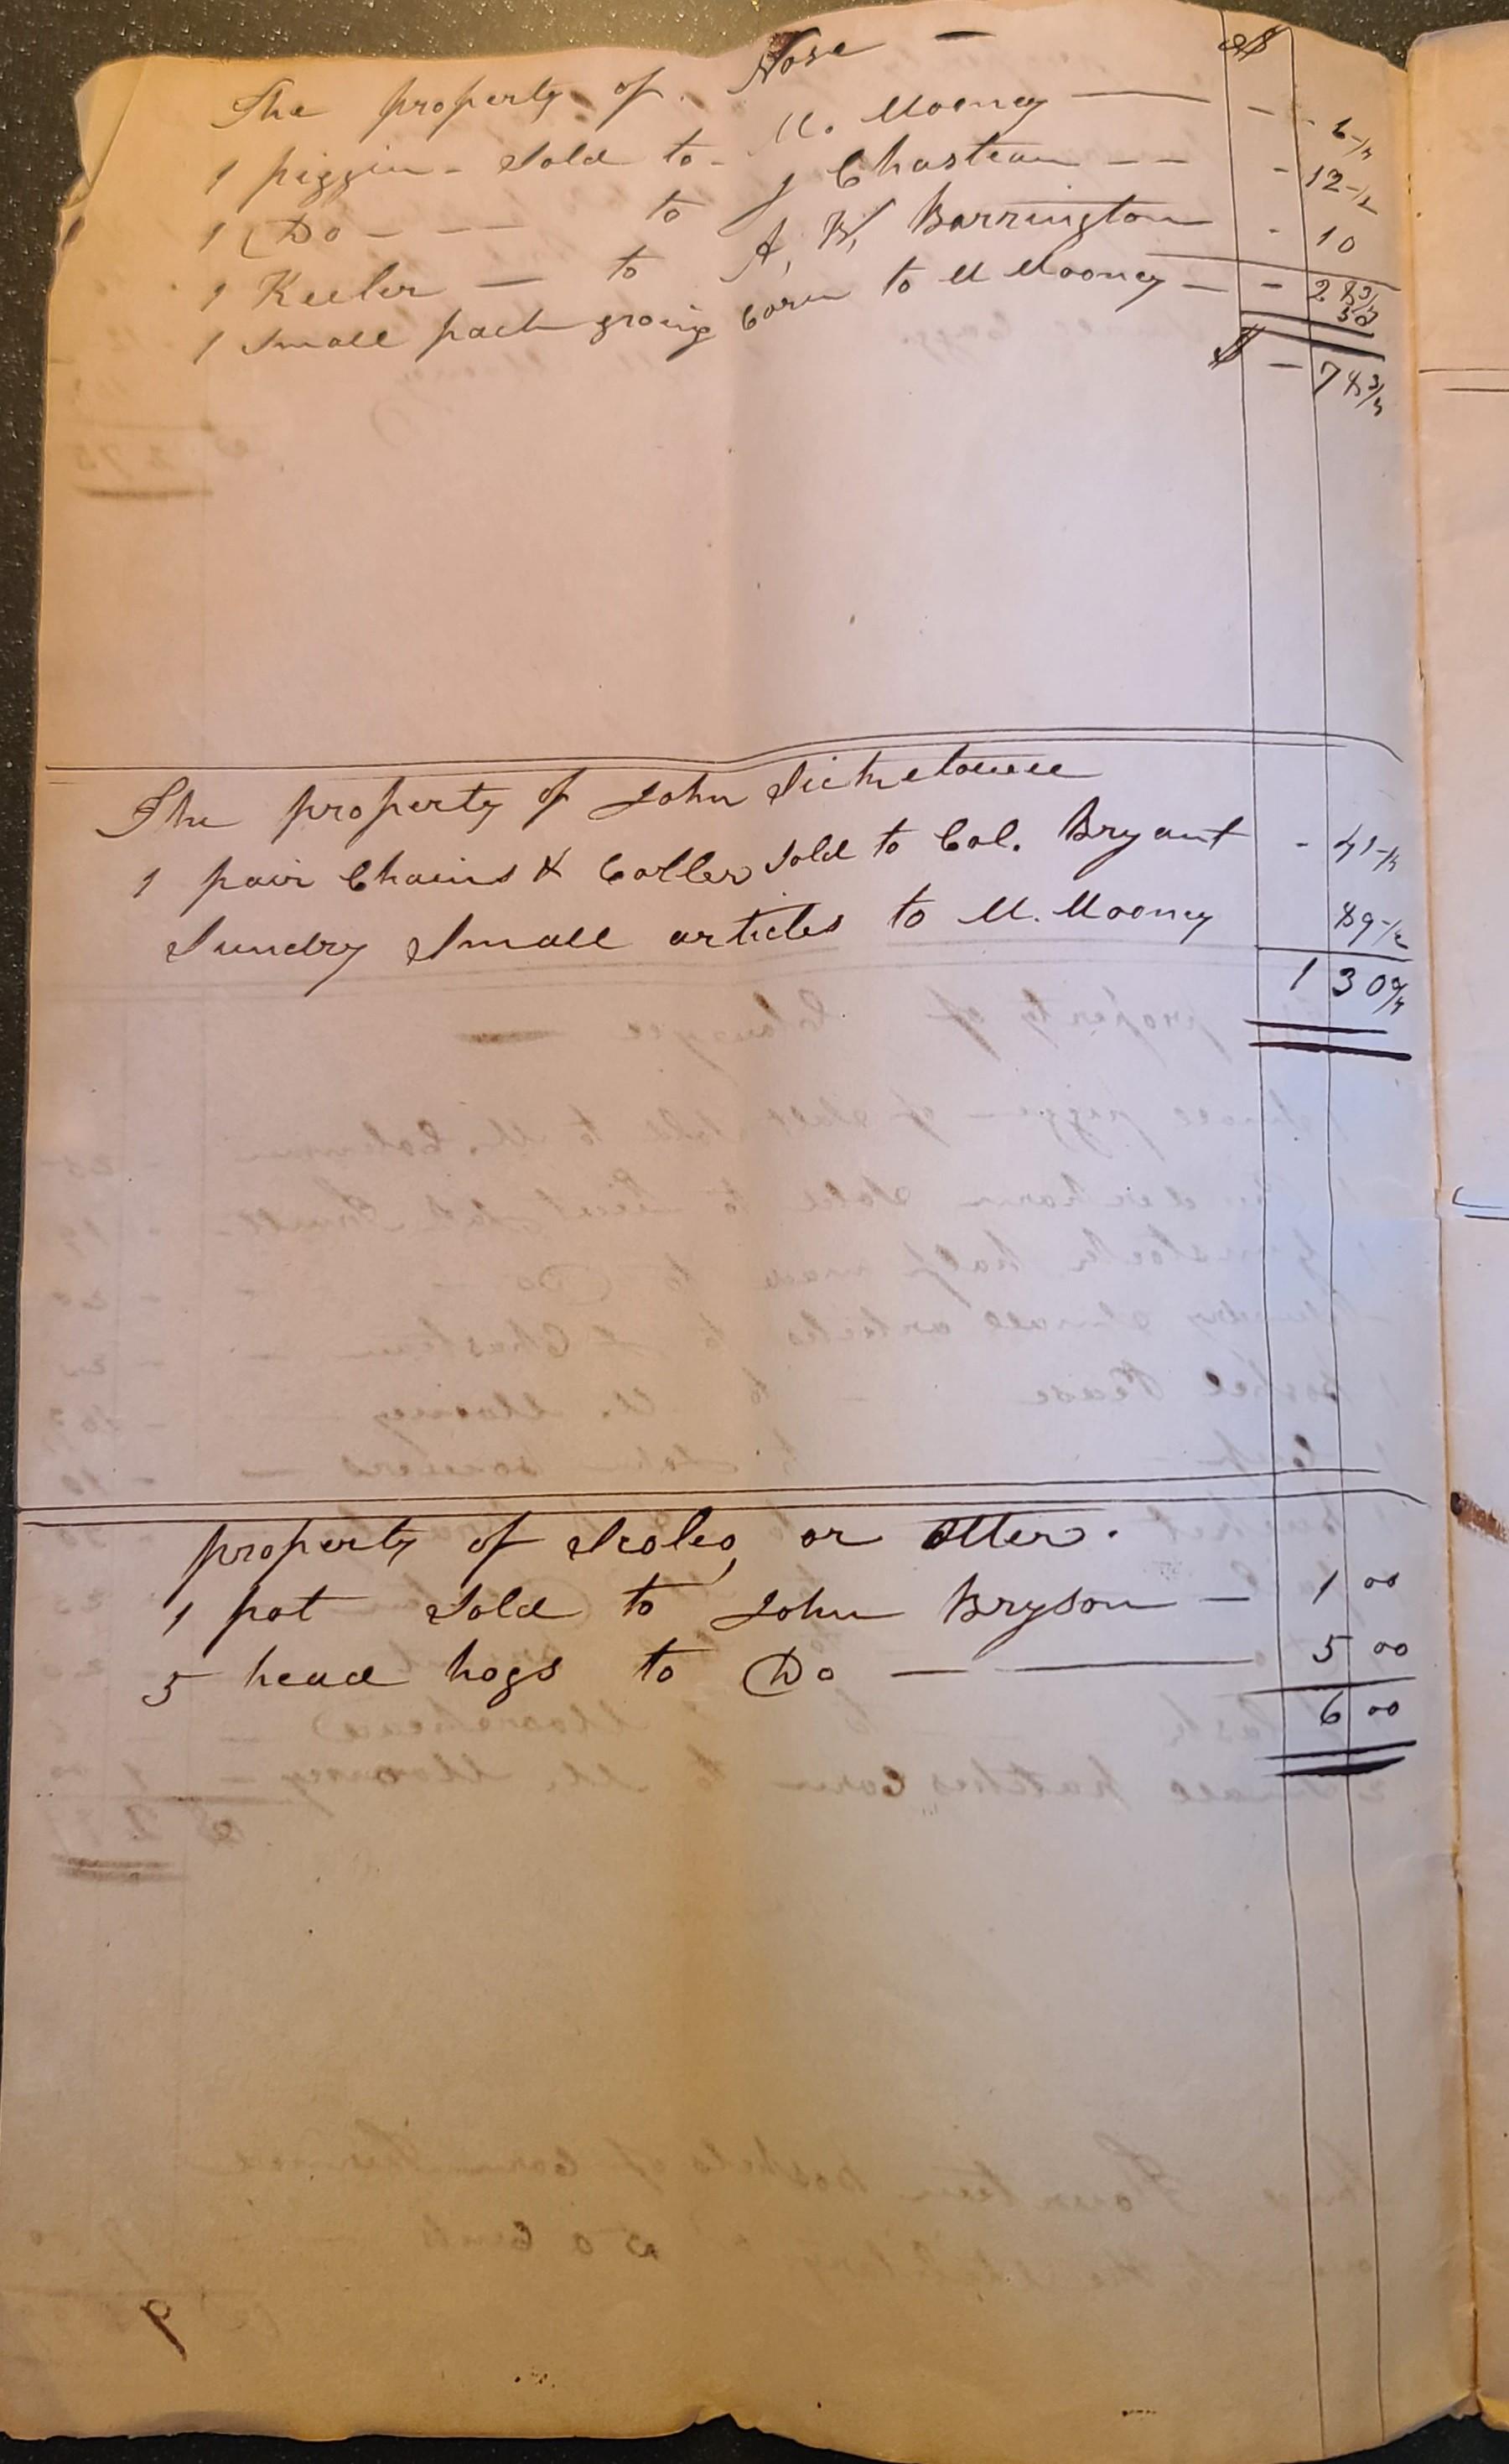 The property of Nose — $
1 piggin - Sold to - M. Mooney — - - 6-1/4
1 Do - — — to J Chasteen — — - 12-1/2
1 Keeler — to A, W, Barrington - 10
- 28 3/4
1 Small pach groing Corn to M Mooney — 50
$ - 78 3/4
The property of John
1 pair Chains & Coller Sold to Col. Bryant - 41-1/4
Sundry Small articles to M. Mooney 89-1/2
1 30 3/4
property of or Otter.
1 pot Sold to John Bryson — 1 00
5 head hogs to Do — — 5 00
6 00
9